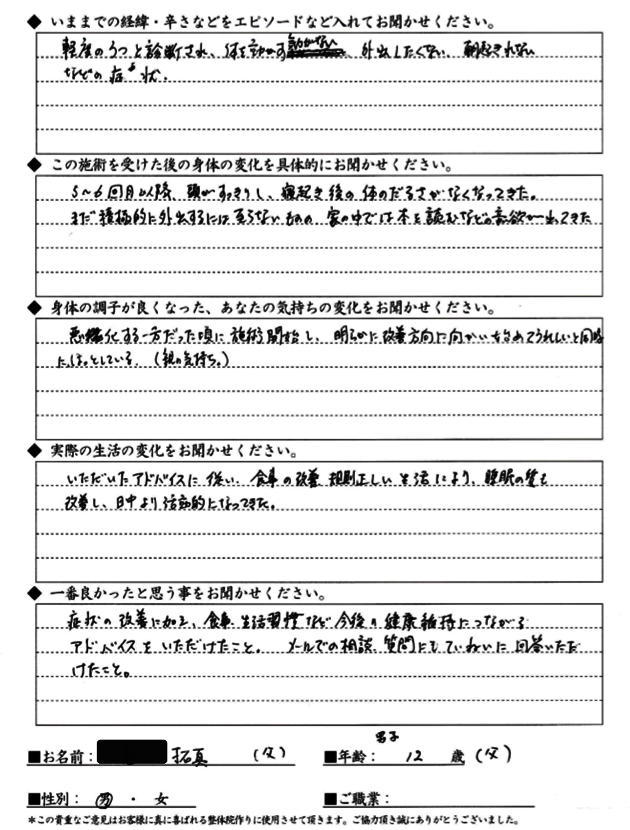 ◆ いままでの経緯・辛さなどをエピソードなど入れてお聞かせください。
軽度のうつと診断され、体を動かす動かない 外出したくない、朝起きれない
などの症状。
◆ この施術を受けた後の身体の変化を具体的にお聞かせください。
5〜6回目以降、頭がすっきりし、寝起き後の体のだるさがなくなってきた。
まだ積極的に外出するには至らないものの、家の中では本を読むなどの意欲が出てきた
◆ 身体の調子が良くなった、あなたの気持ちの変化をお聞かせください。
悪化する一方だった頃に施術開始し、明らかに改善方向に向かい始めてうれしいと同時
に、ほっとしている。(親の気持ち。)
◆ 実際の生活の変化をお聞かせください。
いただいたアドバイスに従い、食事の改善、規則正しい生活により、睡眠の質も
改善し、日中より活動的になってきた。
◆ 一番良かったと思う事をお聞かせください。
症状の改善に加え、食事、生活習慣など今後の健康維持につながる
アドバイスをいただけたこと。 メールでの相談、質問にもていねいに回答いただ
けたこと。
男子
■お名前: 拓真 (父) ■年齢: 12 歳 (父)
■性別: 男 ・ 女 ■ご職業:
*この貴重なご意見はお客様に真に喜ばれる整体院作りに使用させて頂きます。ご協力頂き誠にありがとうございました。